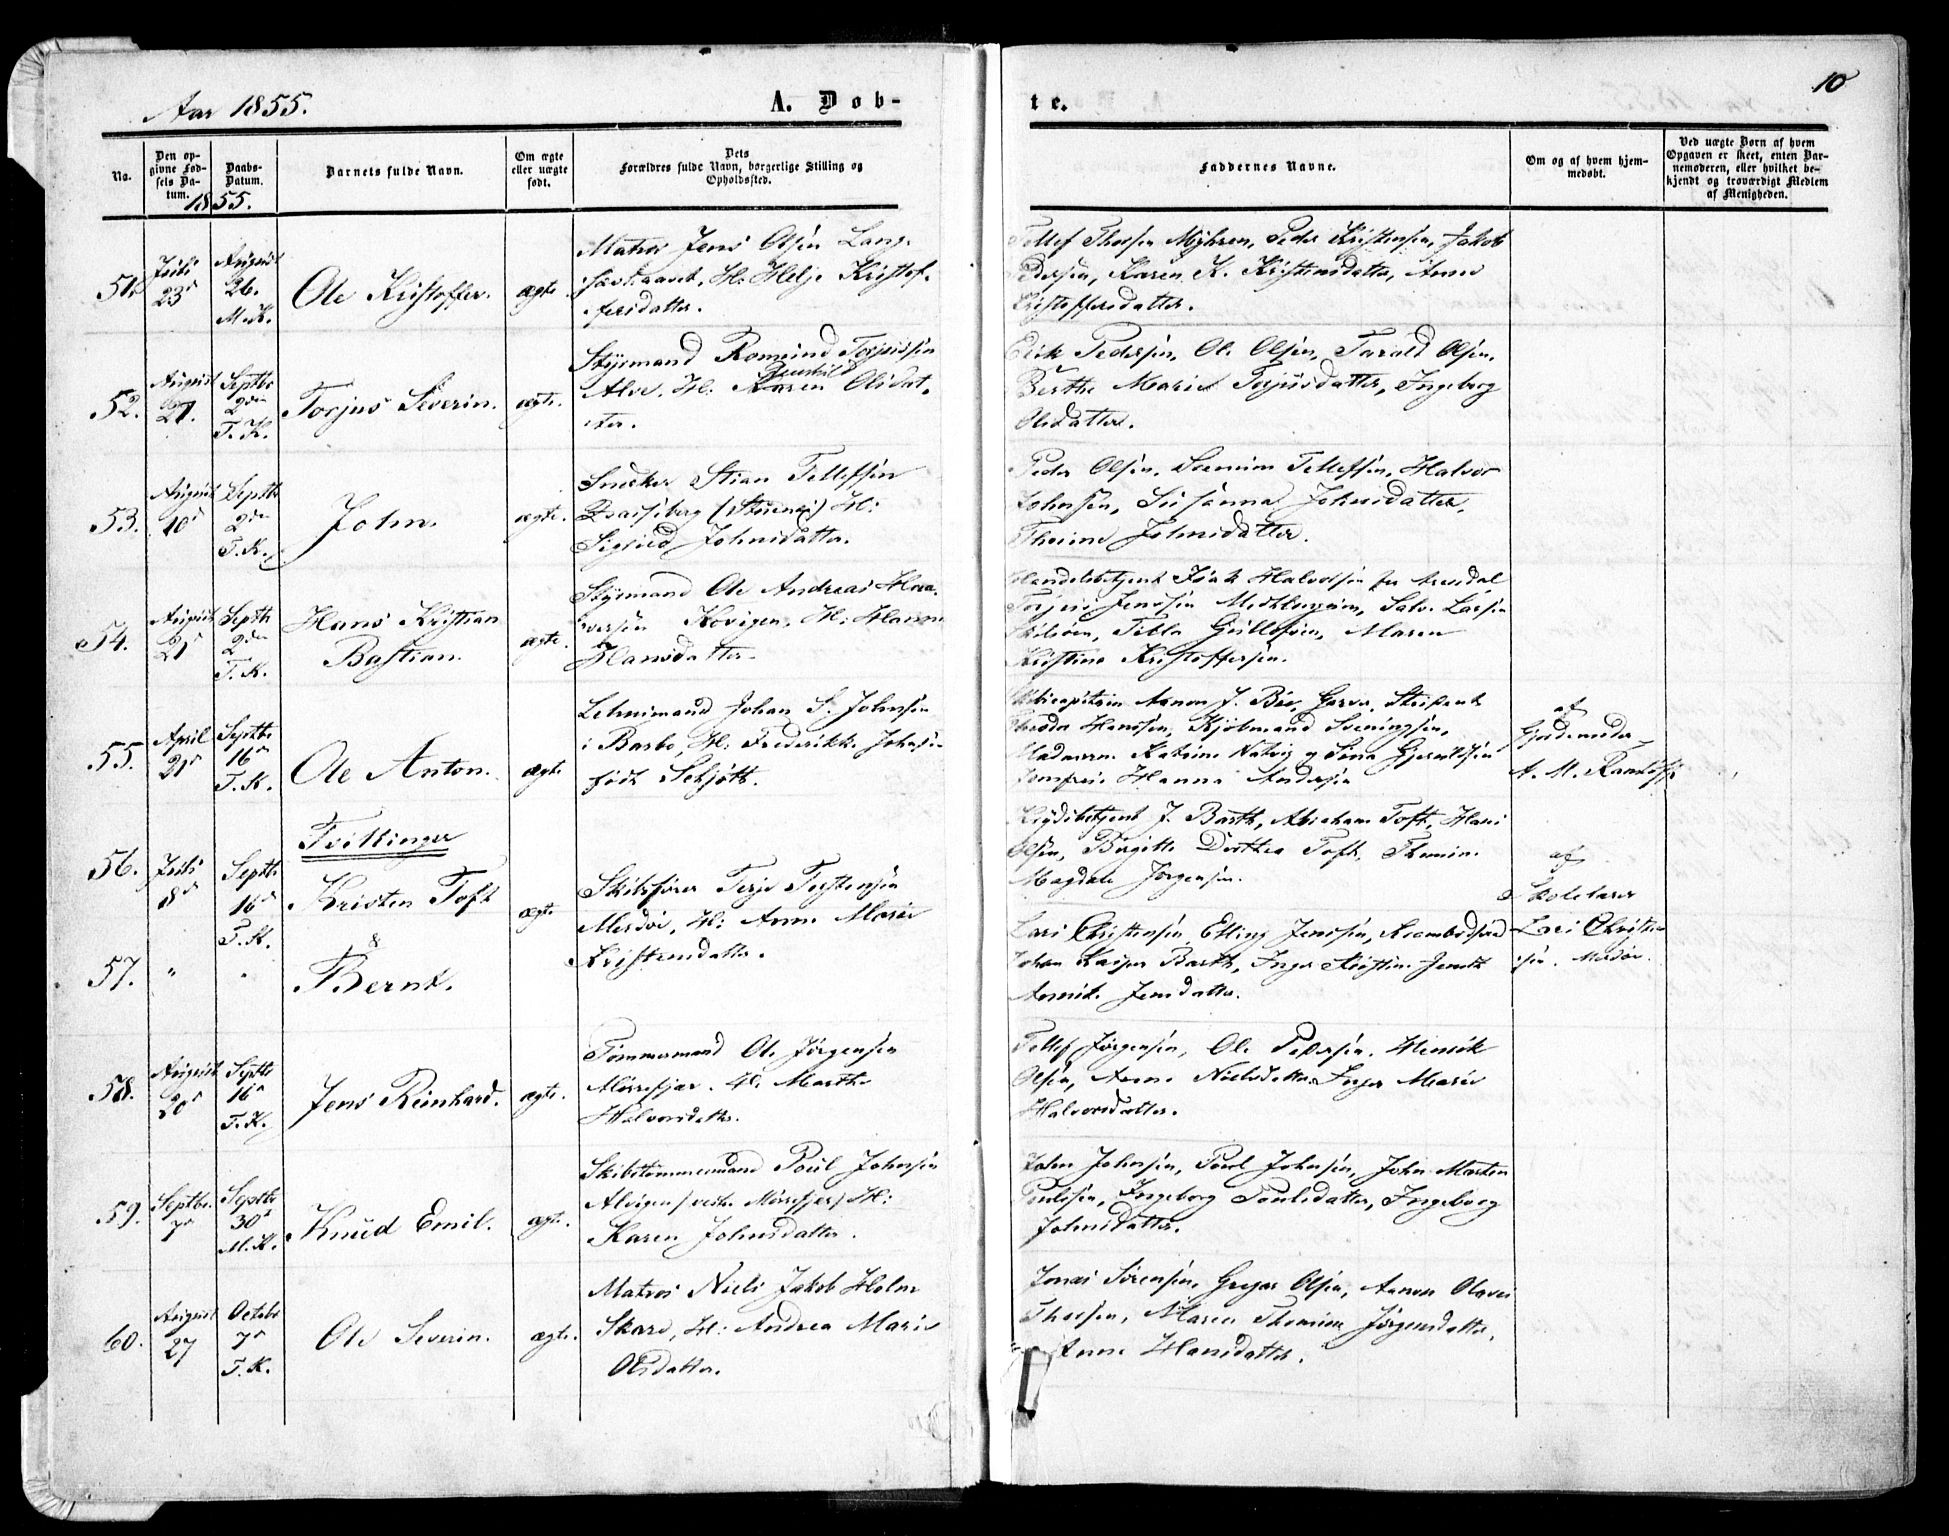 Aar 1855.
A. Dob-
te.
10
No.
Den op-
givne Fød-
sels Da-
tum.
Daabs-
Datum.
1855.
Barnets fulde Navn.
Om ægte
eller uægte
født.
Dets
Forældres fulde Navn, borgerlige Stilling og
Opholdssted.
Faddernes Navne.
Om og af hvem hjem-
medøbt.
Ved uægte Børn af hvem
Opgaven er skeet, enten Bar-
nemoderen, eller hvilket be-
kjendt og troværdigt Medlem
af Menigheden.
51.
Juli
23
August
26.
M.K.
Ole Kristoffer.
ægte
Matros Jens Olsen Lang-
H: Helje Kristof-
fersdatter.
Tellef Thorsen Myhren, Peder Kristensen, Jakob
Pedersen, Karen K. Kristensdatter, Anne
Kristoffersdatter.
52.
August
27.
Septbr
2den
T.K.
Torjus Severin.
ægte.
Styrmand Romund Torjussen
Alve. H: Karen Olsdat-
ter.
Erik Pedersen, Ole Olsen, Tarald Olsen,
Berthe Marie Torjusdatter, Ingeborg
Olsdatter.
53.
August
10
Septbr
2den
T.K.
John.
ægte.
Snedker Stian Tellefsen
H:
Sigrid Johnsdatter.
Peder Olsen, Tellefsen, Halvor
Johnsen, Susanna Johnsdatter,
Johnsdatter.
54.
August
21
Septbr
2den
T.K.
Hans Kristian
Bastian.
ægte.
Styrmand Ole Andreas Haa-
versen Kovigen, H: Maren
Hansdatter.
Handelsbetjent Isak Halvorsen fra Arendal
Torjus Jensen Salve Larsen
Maren
Kristine Kristoffersen.
55.
April
21
Septbr
16
T.K.
Ole Anton.
ægte
Lehnsmand Johan S. Johnsen
i Barbo, H: Frederikke Johnsen
født Schjøtt.
Aanon J. Bie, Garver
Hansen, Kjøbmand Seeningsen,
Madamme Katrine Natvig og
Jomfru Hanna Andersen
af
Gjordemoder
A. M.
56.
Juli
8
Septbr
16
T.K.
Tvillinger
Kristen Toft
&
ægte
Skibsfører Terje Terjesen
Merdø, H: Anne Marie
Kristensdatter.
J. Barth, Abraham Toft, Hans
Olsen, Birgitte Dorthea Toft,
Magdale Jørgensen.
af
Skolelærer
Lars Christen-
sen. Merdø.
57.
"
"
Bernt.
Lars Christensen, Elling Jensen,
Johan Kasper Barth, Inger Kristine
Jensdatter.
58.
August
20
Septbr
16
T.K.
Jens Reinhard.
ægte.
Tømmermand Ole Jørgensen
H: Marthe
Halvorsdatter.
Tellef Jørgensen, Ole Pedersen, Henrik
Olsen, Anne Nielsdatter, Inger Marie
Halvorsdatter.
59.
Septbr.
7
Septbr
30
M.K.
Knud Emil.
ægte.
Skibstømmermand Poul Johnsen
H:
Karen Johnsdatter.
John Johnsen, Poul Johnsen, John Marten
Poulsen, Ingeborg Poulsdatter, Ingeborg
Johnsdatter.
60.
August
27
Octobr
7
T.K.
Ole Severin.
ægte.
Matros Niels Jakob Holm
Skare, H: Andrea Marie
Olsdatter.
Jonas Sørensen, Gregar Olsen, Aanon
Thorsen, Maren Jørgensdatter,
Anne Hansdatter.